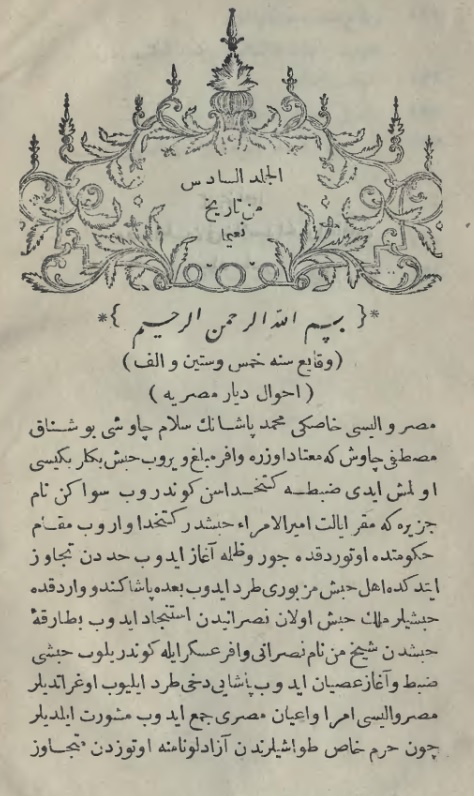 الجلد السادس
من تاريخ
نعيما
*{ بسم الله الرحمن الرحيم }*
(وقايع سنه خمس وستين و الف)
(احوال ديار مصريه)
مصر واليسى خاصكى محمد پاشانك سلام چاوشى بوشناق
مصطفى چاوش كه معتاد اوزره وافر مبلغ و يروب حبش بكلر بكيسى
اولمش ايدى ضبطه كتخداسن كوندروب سواكن نام
جزيره كه مقر ايالت امير الامراء حبشدر كتخدا واروب مقام
حكومتده اوتوردقده جور وظلمه آغاز ايدوب حددن تجاوز
ايتدكده اهل حبش مزبورى طرد ايدوب بعده پاشا كندو واردقده
حبشيلر ملك حبش اولان نصرانيدن استنجاد ايدوب بطارقۀ
حبشدن شيخ من نام نصرانى وافر عسكر ايله كوندريلوب حبشى
ضبط و آغاز عصيان ايدوب پاشايى دخى طرد ايليوب اوغراتديلر
مصر واليسى امرا واعيان مصرى جمع ايدوب مشورت ايلديلر
چون حرم خاص طواشيلرندن آزادلو نامنه اوتوزدن متجاوز